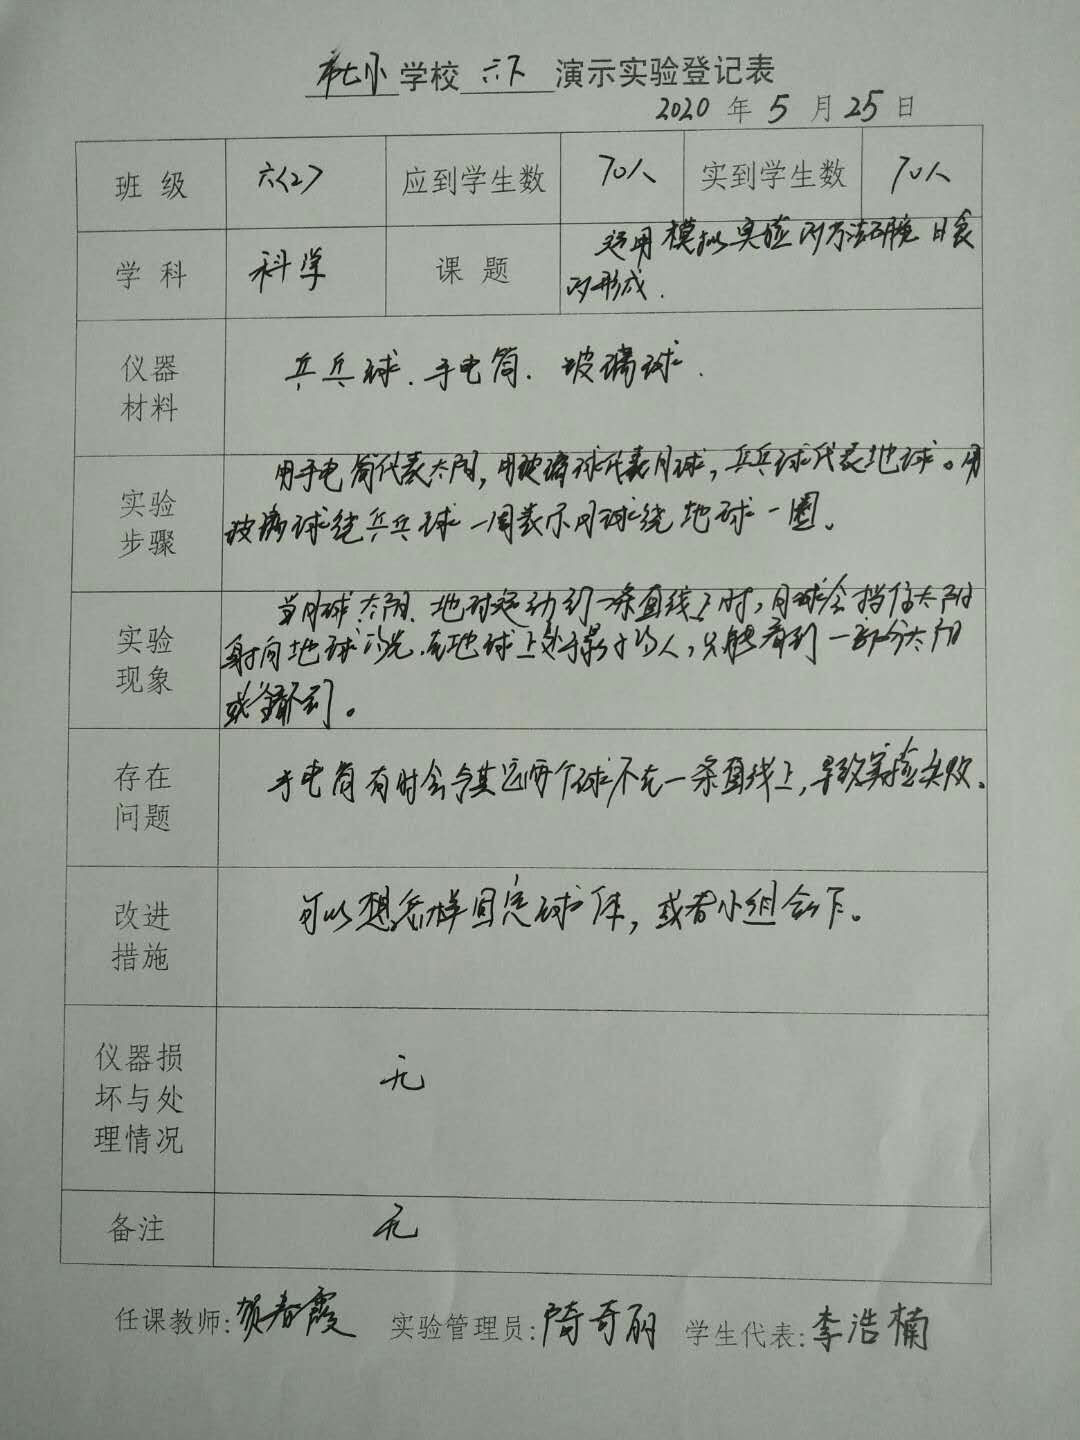 市七小学校六下演示实验登记表
2020年5月25日
班级 六<2> 应到学生数 70人 实到学生数 70人
学科 科学 课题 运用模拟实验的方法研究日食
的形成.
仪器
材料
乒乓球.手电筒.玻璃球.
实验
步骤
用手电筒代表太阳,用玻璃球代表月球,乒乓球代表地球。用
玻璃球绕乒乓球一周表示月球绕地球一圈。
实验
现象
当月球太阳、地球运动到一条直线上时,月球会挡住太阳
射向地球的光.在地球上处于影子的人,只能看到一部分太阳
或全看不到。
存在
问题
手电筒有时会令其它两个球不在一条直线上,导致实验失败.
改进
措施
可以想怎样固定球体,或者小组合作。
仪器损
坏与处
理情况
无
备注
无
任课教师:贺春霞 实验管理员:奇丽 学生代表:李浩楠